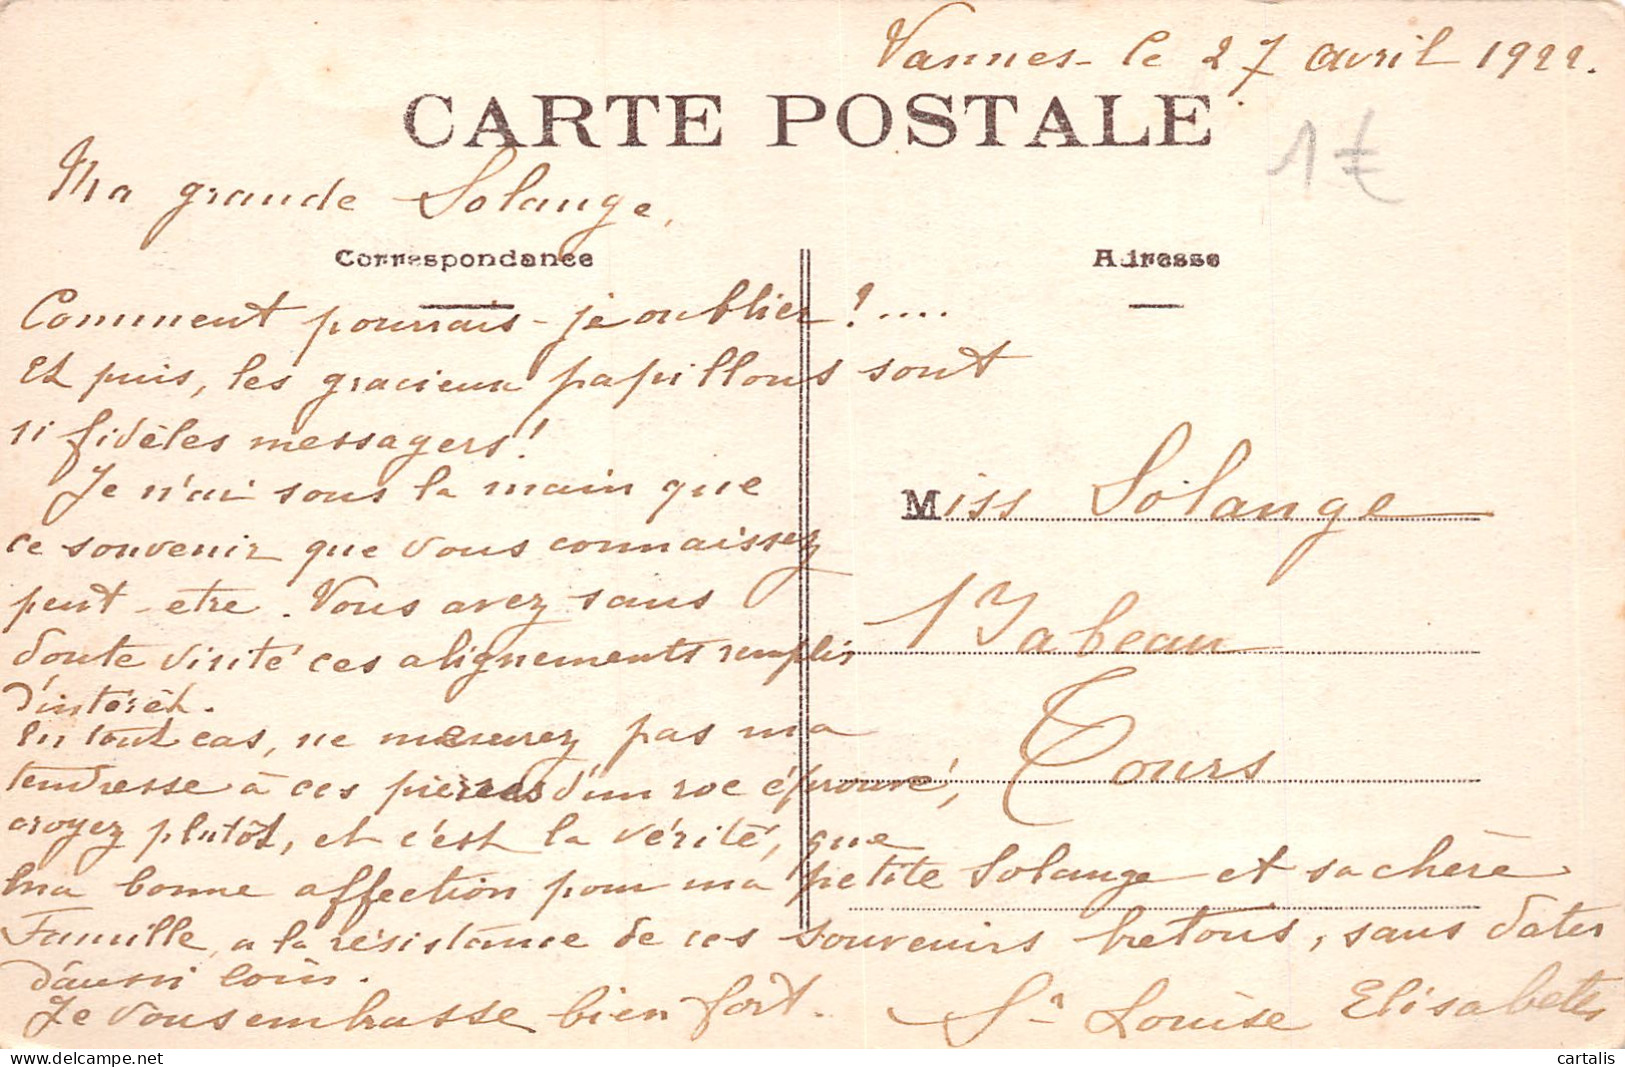 Vannes - le 27 avril 1922.
CARTE POSTALE
1 €
Ma grande Solange,
Correspondance
Adresse
Comment pourrais-je oublier !....
Et puis, les gracieux papillons sont
si fidèles messagers !
Je n'ai sous la main que
ce souvenir que vous connaissez
peut-etre. Vous avez sans
doute visité ces alignements remplis
d'intérêt.
En tout cas, ne mesurez pas ma
tendresse à ces pierres d'un roc éprouvé,
croyez plutôt, et c'est la vérité, que
ma bonne affection pour ma petite Solange et sa chère
Famille, a la résistance de ces souvenirs bretons, sans dater
d'aussi loin.
Je vous embrasse bien fort.
Sr Louise Elisabeth
Miss Solange
Yabeau
Tours
cartalis